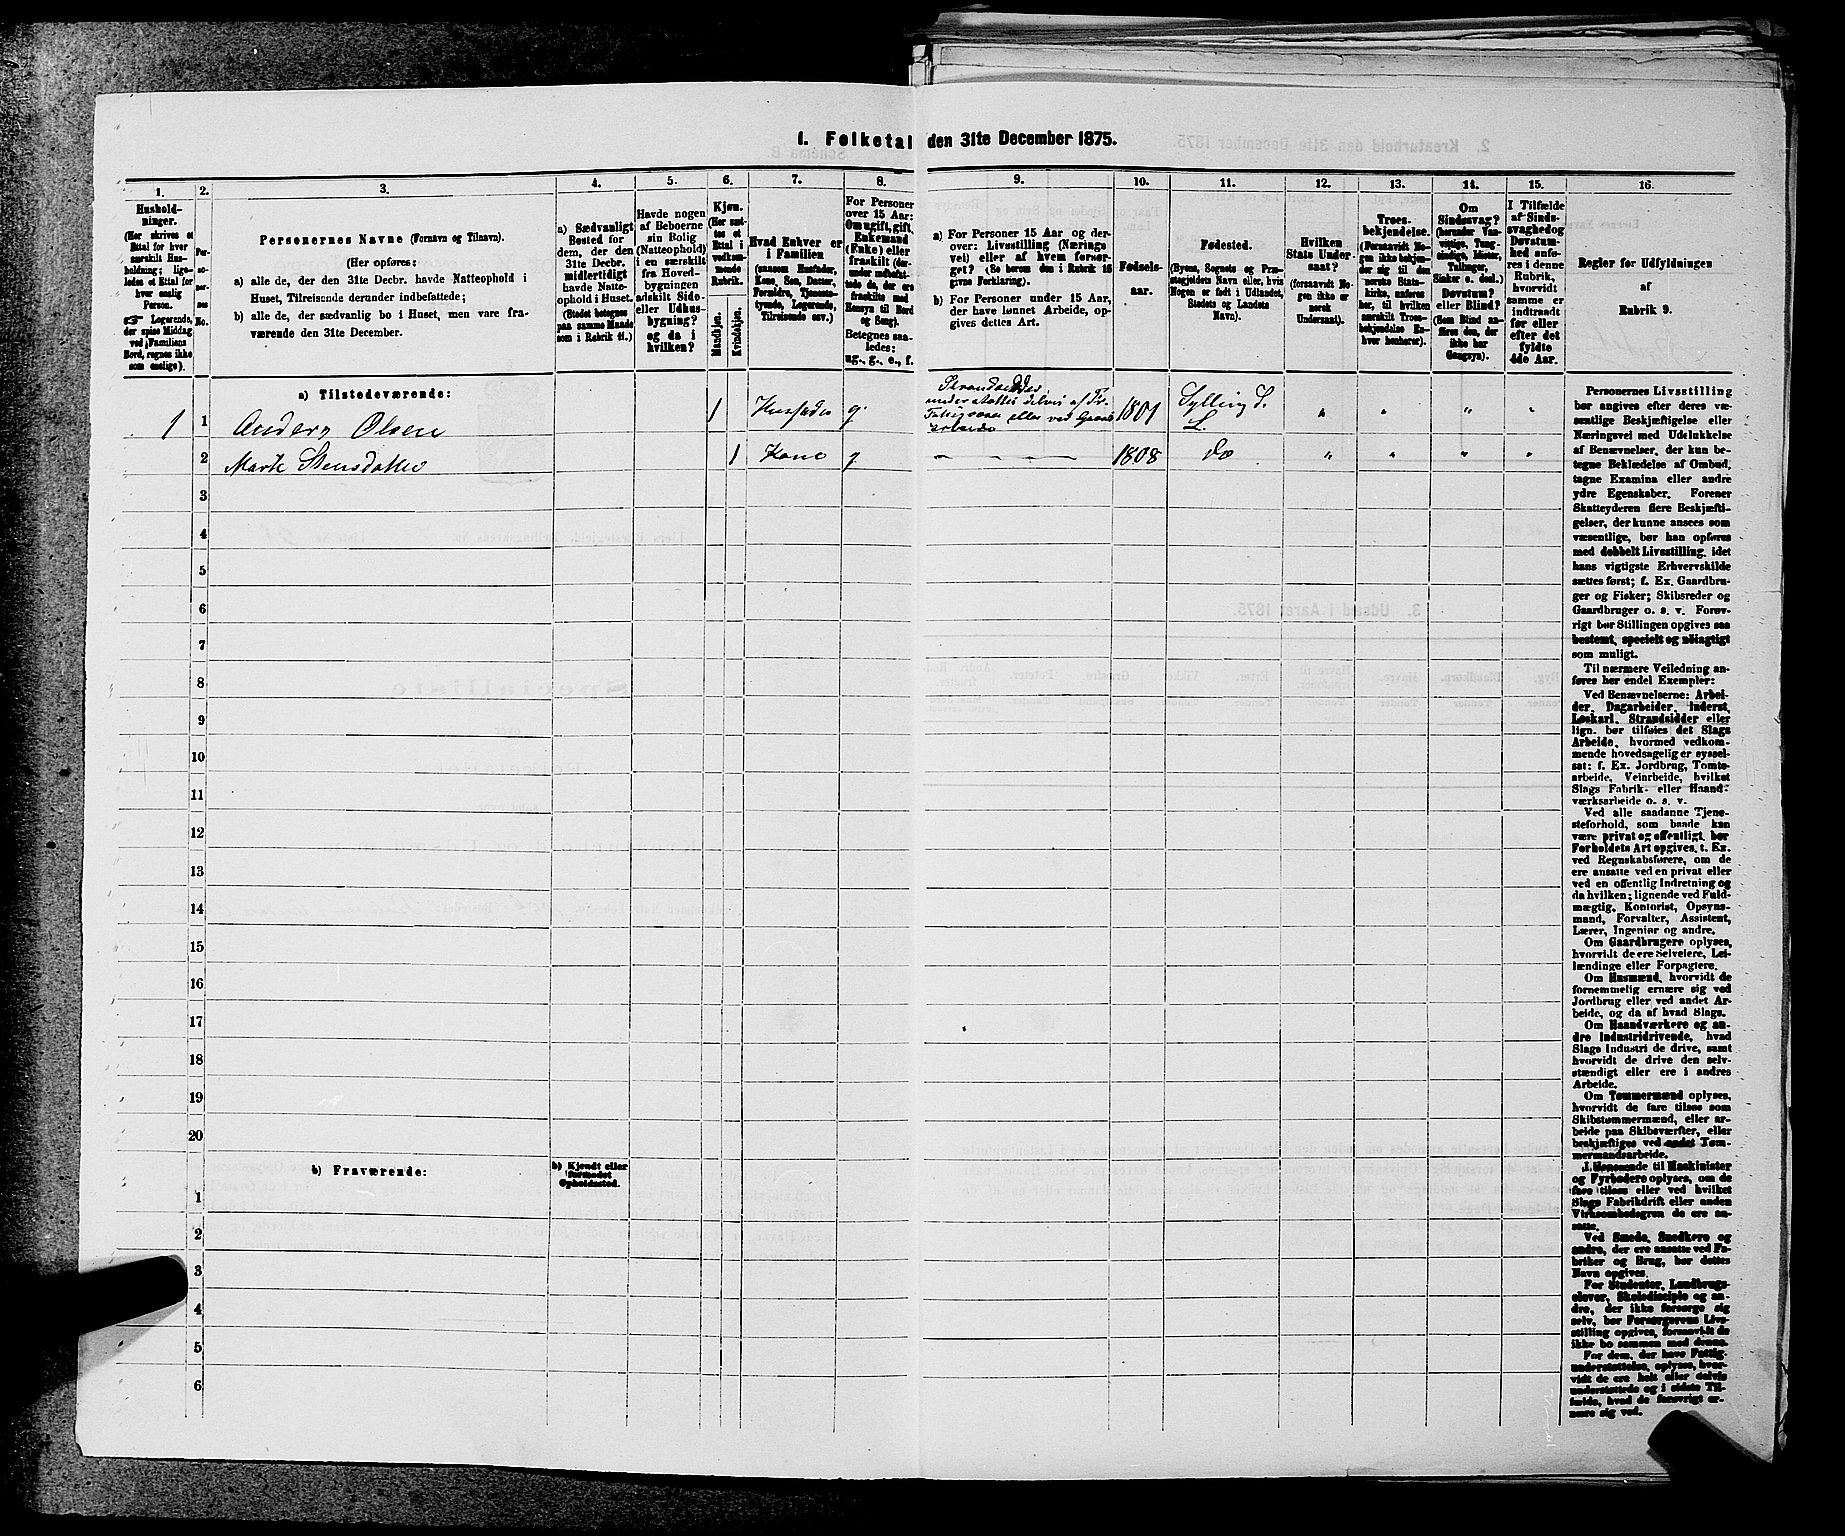 1. Folketal den 31te December 1875.
1.
Hushold-
ninger.
(Her skrives et
Ettal for hver
særskilt Hus-
holdning; lige-
ledes et Ettal for
hver enslig
Person.
☞ Logerende,
der spise Middag
ved Familiens
Bord, regnes ikke
som enslige).
2.
Per-
so-
ner-
nes
No.
3.
Personernes Navne (Fornavn og Tilnavn).
(Her opføres:
a) alle de, der den 31te Decbr. havde Natteophold i
Huset, Tilreisende derunder indbefattede;
b) alle de, der sædvanlig bo i Huset, men vare fra-
værende den 31te December.
4.
a) Sædvanligt
Bosted for
dem, der den
31te Decbr.
midlertidigt
havde Natte-
ophold i Huset.
(Stedet betegnes
paa samme Maade
som i Rubrik 11.)
5.
Havde nogen
af Beboerne
sin Bolig
(Natteophold)
i en særskilt
fra Hoved-
bygningen
adskilt Side-
eller Udhus-
bygning?
og da i
hvilken?
6.
Kjøn.
(Her sæt-
tes et
Ettal i
vedkom-
mende
Rubrik.
Mandkjøn.
Kvindekjøn.
7.
Hvad Enhver er
i Familien
(saasom Husfader,
Kone, Søn, Datter,
Forældre, Tjeneste-
tyende, Logerende,
Tilreisende osv.)
8.
For Personer
over 15 Aar:
Om ugift, gift,
Enkemand
(Enke) eller
fraskilt (der-
under indbefat-
tede de, der ere
fraskilte med
Hensyn til Bord
og Seng).
Betegnes saa-
ledes:
ug., g., e., f.
9.
a) For Personer 15 Aar og der-
over: Livsstilling (Nærings-
vei) eller af hvem forsør-
get? (Se herom den i Rubrik 16
givne Forklaring).
b) For Personer under 15 Aar,
der have lønnet Arbeide, op-
gives dettes Art.
10.
Fødsels-
aar.
11.
Fødested.
(Byens, Sognets og Præ-
stegjeldets Navn eller, hvis
Nogen er født i Udlandet,
Stedets og Landets
Navn).
12.
Hvilken
Stats Under-
saat?
(forsaavidt No-
gen ikke er
norsk
Undersaat).
13.
Troes-
bekjendelse.
(Forsaavidt No-
gen ikke bekjen-
der sig til den
norske Stats-
kirke, anføres
her, til hvilken
særskilt Troes-
bekjendelse En-
hver henhører).
14.
Om
Sindssvag?
(herunder Van-
vittige, Tung-
sindige, Idioter,
Tullinger,
Sinker o. desl.)
Døvstum?
eller Blind?
(Som Blind an-
føres den, der
ikke har
Gangsyn).
15.
I Tilfælde
af Sinds-
svaghed og
Døvstum-
hed anfø-
res i denne
Rubrik,
hvorvidt
samme er
indtraadt
før eller
efter det
fyldte
4de Aar.
16.
Regler for Udfyldningen
af
Rubrik 9.
a) Tilstedeværende:
1 1 Anders Olsen 1 Husfader g. Strandsidder,
understøttes delvis af
Fattigvæsen eller ved Gaards
arbeide 1801 Sylling S.
L. " " " "
2 Marte Stensdatter 1 Kone g. — — — 1808 do " " " "
3
4
5
6
7
8
9
10
11
12
13
14
15
16
17
18
19
20
b) Fraværende:
b) Kjendt eller
formodet
Opholdssted.
1
2
3
4
5
6
Personernes Livsstilling
bør angives efter deres væ-
sentlige Beskjæftigelse eller
Næringsvei med Udelukkelse
af Benævnelser, der kun be-
tegne Beklædelse af Ombud,
tagne Examina eller andre
ydre Egenskaber. Forener
Skatteyderen flere Beskjæfti-
gelser, der kunne ansees som
væsentlige, bør han opføres
med dobbelt Livsstilling, idet
hans vigtigste Erhvervskilde
sættes først; f. Ex. Gaardbru-
ger og Fisker; Skibsreder og
Gaardbruger o. s. v. Forøv-
rigt bør Stillingen opgives saa
bestemt, specielt og nøiagtigt
som muligt.
Til nærmere Veiledning an-
føres her endel Exempler:
Ved Benævnelserne: Arbei-
der, Dagarbeider, Inderst,
Løskarl, Strandsidder eller
lign. bør tilføies det Slags
Arbeide, hvormed vedkom-
mende hovedsagelig er syssel-
sat: f. Ex. Jordbrug, Tomte-
arbeide, Veiarbeide, hvilket
Slags Fabrik- eller Haand-
værksarbeide o. s. v.
Ved alle saadanne Tjene-
steforhold, som baade kan
være privat og offentligt, bør
Forholdets Art opgives, t. Ex.
ved Regnskabsførere, om de
ere ansatte ved en privat eller
ved en offentlig Indretning og
da hvilken; lignende ved Fuld-
mægtig, Kontorist, Opsyns-
mand, Forvalter, Assistent,
Lærer, Ingeniør og andre.
Om Gaardbrugere oplyses,
hvorvidt de ere Selveiere, Lei-
lændinge eller Forpagtere.
Om Husmænd, hvorvidt de
fornemmelig ernære sig ved
Jordbrug eller ved andet Ar-
beide, og da af hvad Slags.
Om Haandværkere og an-
dre Industridrivende, hvad
Slags Industri de drive, samt
hvorvidt de drive den selv-
stændigt eller ere i andres
Arbeide.
Om Tømmermænd oplyses,
hvorvidt de fare tilsøs som
Skibstømmermænd, eller ar-
beide paa Skibsværfter, eller
beskjæftiges ved andet Tøm-
mermandsarbeide.
I Henseende til Maskinister
og Fyrbødere oplyses, om de
fare tilsøs eller ved hvilket
Slags Fabrikdrift eller anden
Virksomhedsgren de ere an-
satte.
Ved Smede, Snedkere og
andre, der ere ansatte ved Fa-
briker og Brug, bør dettes
Navn opgives.
For Studenter, Landbrugs-
elever, Skoledisciple og an-
dre, der ikke forsørge sig
selv, bør Forsørgerens Livs-
stilling opgives, forsaavidt de
ikke bo sammen med denne.
For dem, der have Fattig-
understøttelse, oplyses, hvor-
vidt de ere helt eller delvis
understøttede og i sidste Til-
fælde, hvad de forøvrigt er-
nære sig ved.